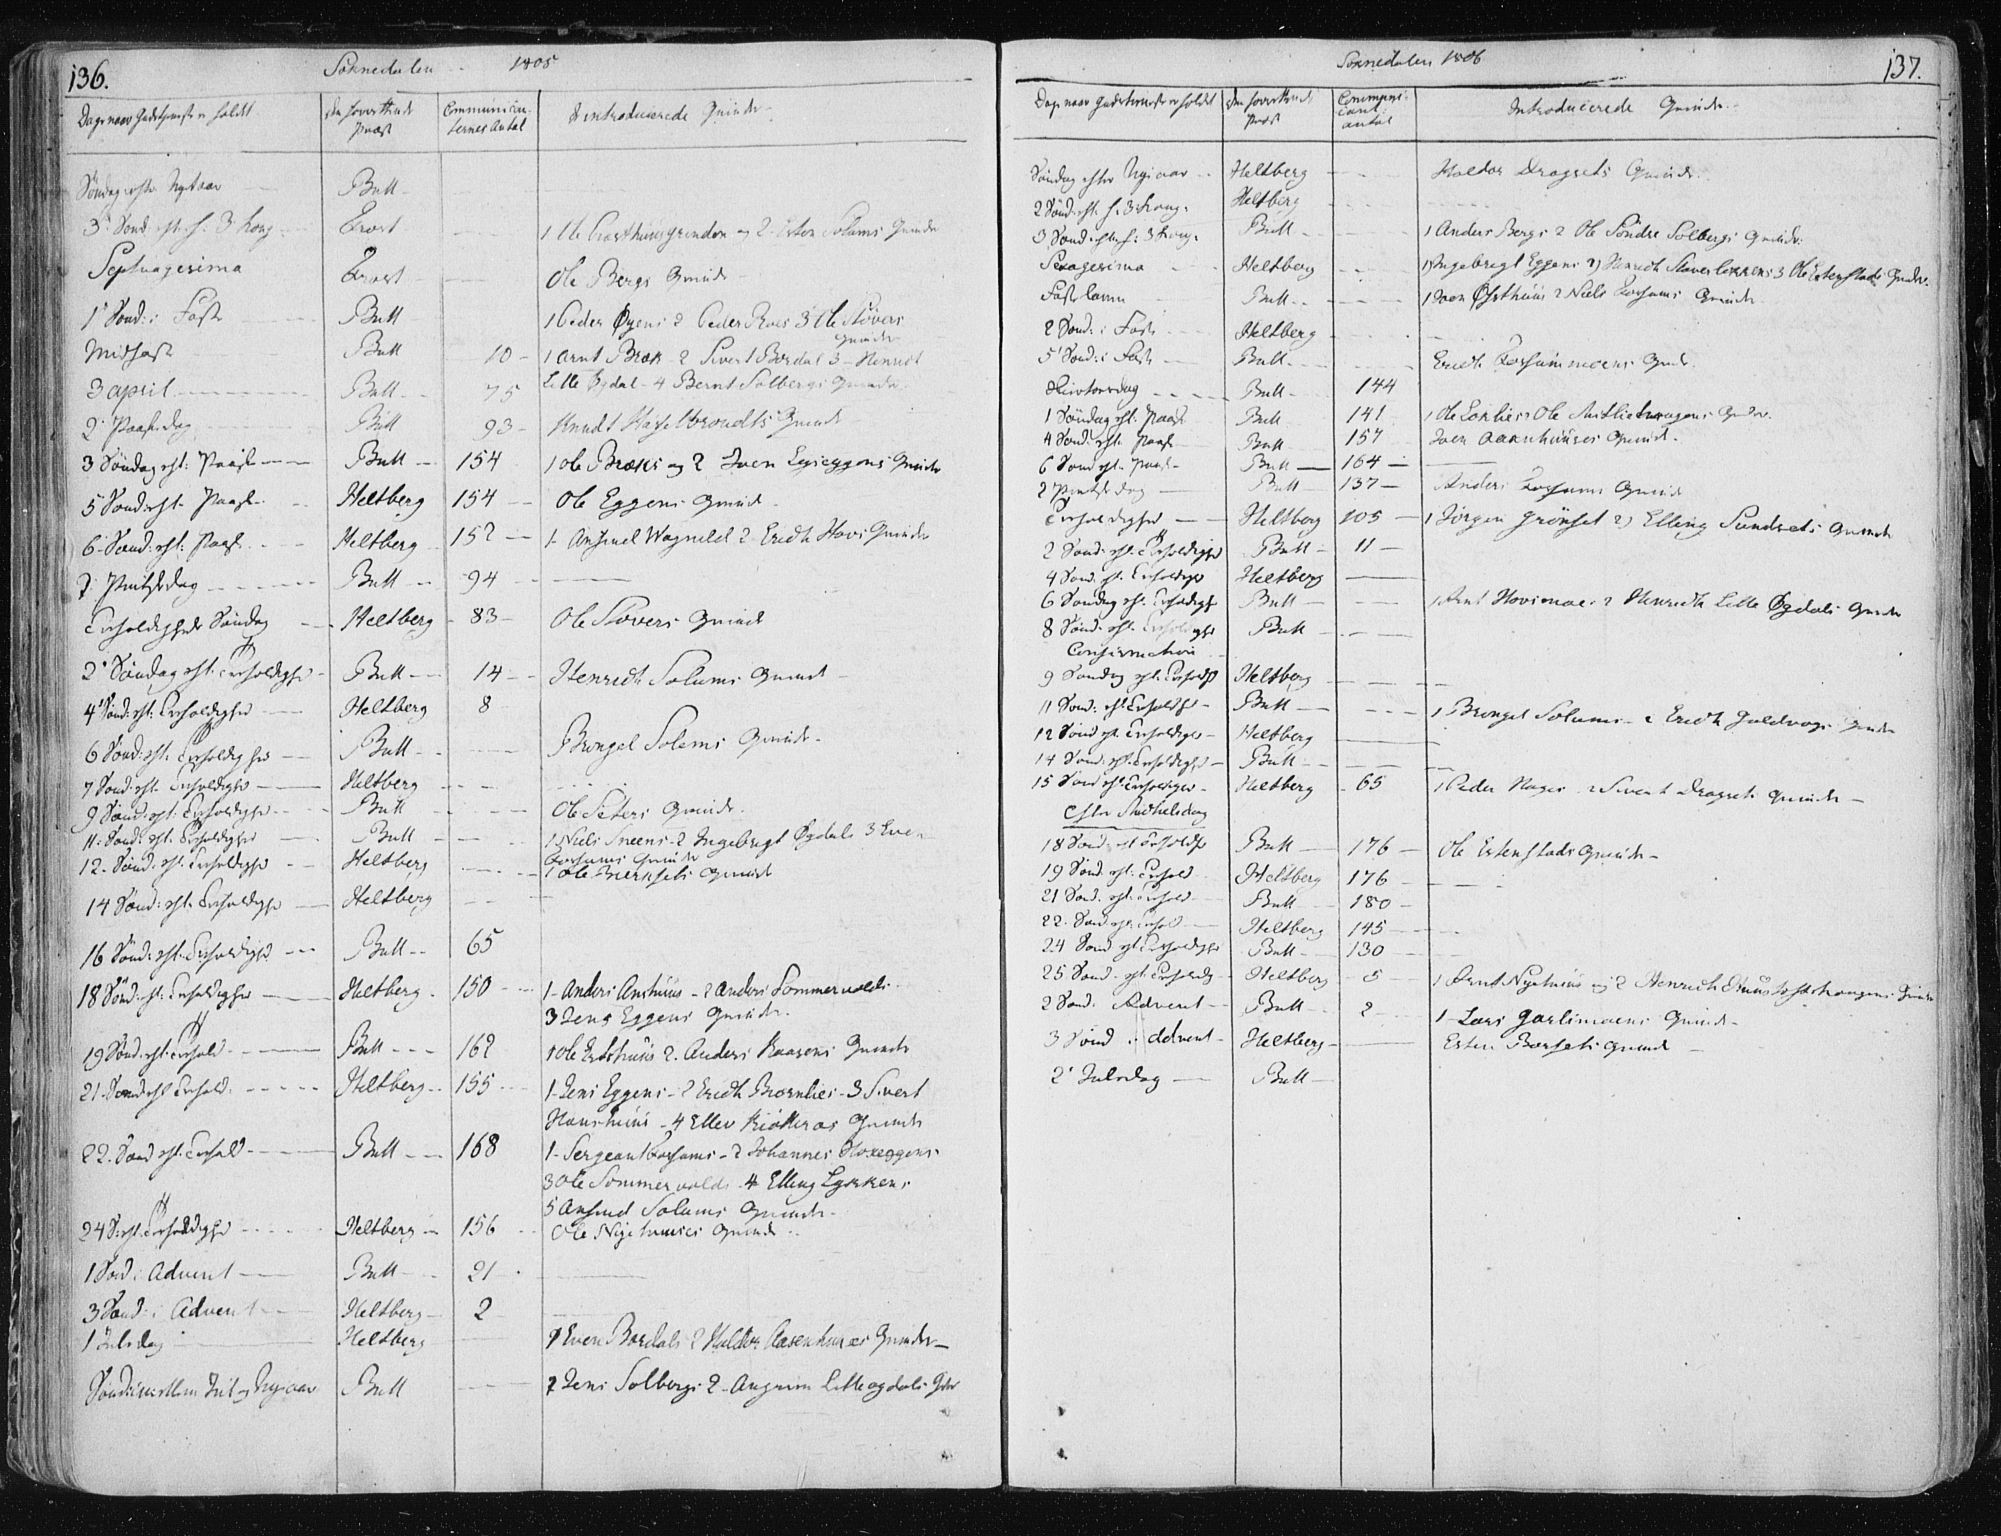 136.
Soknedalen 1805
Dage naar Gudstjeneste er holdt
den forrettende Præst
Communicanternes Antal
Introducerede Qvinder
Søndag efter Nytaar Butt
3 Sønd: eft: h: 3 Kong Brost 1 Ole Grosthuusgrinden og 2 Esten Solums Qvinder
Septuagesima Brost Ole Bergs Qvinde
1 Sønd: i Faste Butt 1 Peder Øyens 2 Peder Roes 3 Ole Støvers
Qvinder
Midfaste Butt 10 1 Arnt Bræk 2 Sivert Bordal 3 Henrich
3 april Butt 75 Lille Øgdal 4 Bernt Solbergs Qvinder
2 Paaskedag Butt 93 Knudt Hasselbroudts Qvinde
3 Søndag eft: Paaske Butt 154 1 Ole Bræks og 2 Joen Eggens Qvinder
5 Sønd: eft: Paaske Heltberg 154 Ole Eggens Qvinde
6 Sønd: eft: Paaske Heltberg 152 1 Amund Wagnild 2 Erich Hovs Qvinder
2 Pintsedag Butt 94
Trefoldigheds Søndag Heltberg 83 Ole Støvers Qvinde
2 Søndag eft: Trefoldighed Butt 14 Henrich Solums Qvinde
4 Sønd: eft: Trefoldighed Heltberg 8
6 Sønd: eft: Trefoldighed Butt Brengel Solems Qvinde
7 Sønd: eft: Trefoldighed Heltberg
9 Sønd: eft: Trefoldighed Butt Ole Seters Qvinde
11 Sønd: eft: Trefoldighed Butt 1 Niels Sneens 2 Ingebrigt Øgdals 3 Even
12 Sønd: eft: Trefoldighed Heltberg Forsums Qvinder
1 Ole Merksets Qvinde
14 Sønd: eft: Trefoldighed Heltberg
16 Sønd: eft: Trefoldighed Butt 65
18 Sønd: eft: Trefoldighed Heltberg 150 1 Anders Aashuus 2 Anders Sommervolds
3 Jens Eggens Qvinder
19 Sønd: eft: Trefold Butt 162 1 Ole Estshuus 2 Anders Kaasens Qvinder
21 Sønd eft Trefold: Heltberg 155 1 Jens Eggens 2 Erich Biørnlies 3 Sivert
Haushuus 4 Ellev Kiøtteraas Qvinder
22 Sønd eft: Trefold Butt 168 1 Sergeant Forsums 2 Johannes Hoxeggens
3 Ole Sommervolds 4 Elling Lykkens
5 Amund Solums Qvinder
24 S: eft: Trefoldighed Heltberg 156 Ole Nyehuuses Qvinde
1 Sønd i Advent Butt 21
3 Sønd: i Advent Heltberg 2
1 Juledag Heltberg 1 Even Bordals 2 Haldor Aasenhuuses Qvinder
Sønd: imellem Juul og Nyeaar Butt 1 Jens Solbergs 2 Angrim Lilleøgdals Qvinder
137.
Soknedalen 1806
Dage naar Gudstieneste er holdt
den forrettende Præst
Communicant antal
Introducerede Qvinder
Søndag efter Nyeaar Heltberg Haldor Dragsets Qvinde
2 Sønd: eft: h: 3 kong: Heltberg
3 Sønd: eft h: 3 kong: Butt 1 Anders Bergs 2 Ole Søndre Solbergs Qvinder
Sexagesima Heltberg 1) Ingebrigt Eggens 2) Henrich Staverløkkens 3 Ole Estenstads Qvinder
Fastelavn Butt 1 Joen Østhuus 2 Niels Forsums Qvinder
2 Sønd: i Faste Heltberg
5 Sønd: i Faste Butt Erich Forsummoens Qvinde
Skiertorsdag Butt 144
1 Søndag eft: Paaske Butt 141 1 Ole Lonlies
4 Sønd: eft Paaske Butt 157 Joen Aaenhuuses Qvinde
6 Sønd eft: Paaske Butt 164
2 Pintsedag Butt 137 Anders Forsums Qvinde
Trefoldighed Heltberg 105 1 Jørgen Grønset 2) Elling Sundsets Qvinder
2 Sønd: eft: Trefoldighed Butt 11
4 Sønd: eft: Trefoldighed Heltberg
6 Søndag eft: Trefoldighed Butt 1 Arnt Hovsmoe 2 Henrich Lille Øgdals Qvinder
8 Sønd: eft: Trefoldighed Butt
Confirmation
9 Søndag eft: Trefoldighed Heltberg
11 Sønd: eft Trefoldighed Butt 1 Brengel Solums 2 Erich Guldvogs Qvinder
12 Sønd eft: Trefoldighed Heltberg
14 Sønd: eft: Trefoldighed Butt
15 Sønd eft: Trefoldighed Heltberg 65 1 Peder Hages 2 Sivert Dragsets Qvinder
Efter Michelsdag
18 Sønd: eft Trefoldighed Butt 176 Ole Estenstads Qvinde
19 Sønd: eft: Trefold Heltberg 176
21 Sønd: eft: Trefold Butt 180
22 Sønd eft: Trefold Heltberg 145
24 Sønd eft Trefoldighed Butt 130
25 Sønd: eft: Trefoldig Heltberg 5 1 Arnt Nyehuus og 2 Henrich
2 Sønd: Advent Butt 2 1 Lars Garlimoens Qvinde
3 Sønd i Advent Heltberg Esten Borsets Qvinde
2 Juledag Butt